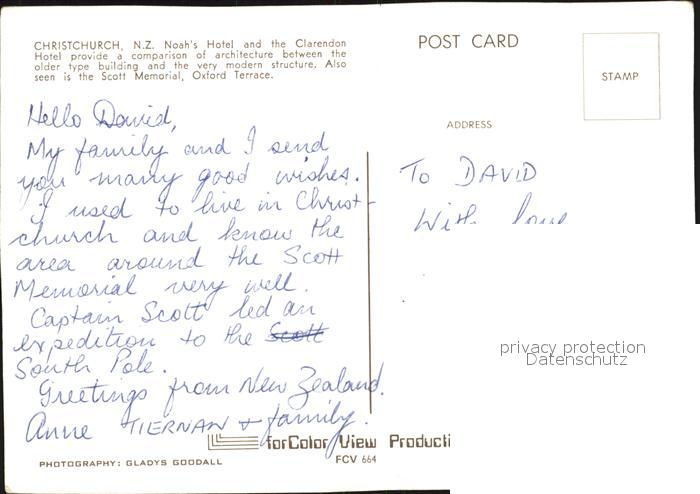 CHRISTCHURCH, N.Z. Noah's Hotel and the Clarendon
Hotel provide a comparison of architecture between the
older type building and the very modern structure. Also
seen is the Scott Memorial, Oxford Terrace.
Hello David,
My family and I send
you many good wishes.
I used to live in Christ-
church and know the
area around the Scott
Memorial very well.
Captain Scott led an
expedition to the Scott
South Pole.
Greetings from New Zealand.
Anne TIERNAN + family.
PHOTOGRAPHY: GLADYS GOODALL
POST CARD
STAMP
ADDRESS
To DAVID
With love
privacy protection
Datenschutz
forColor View Producti
FCV 664